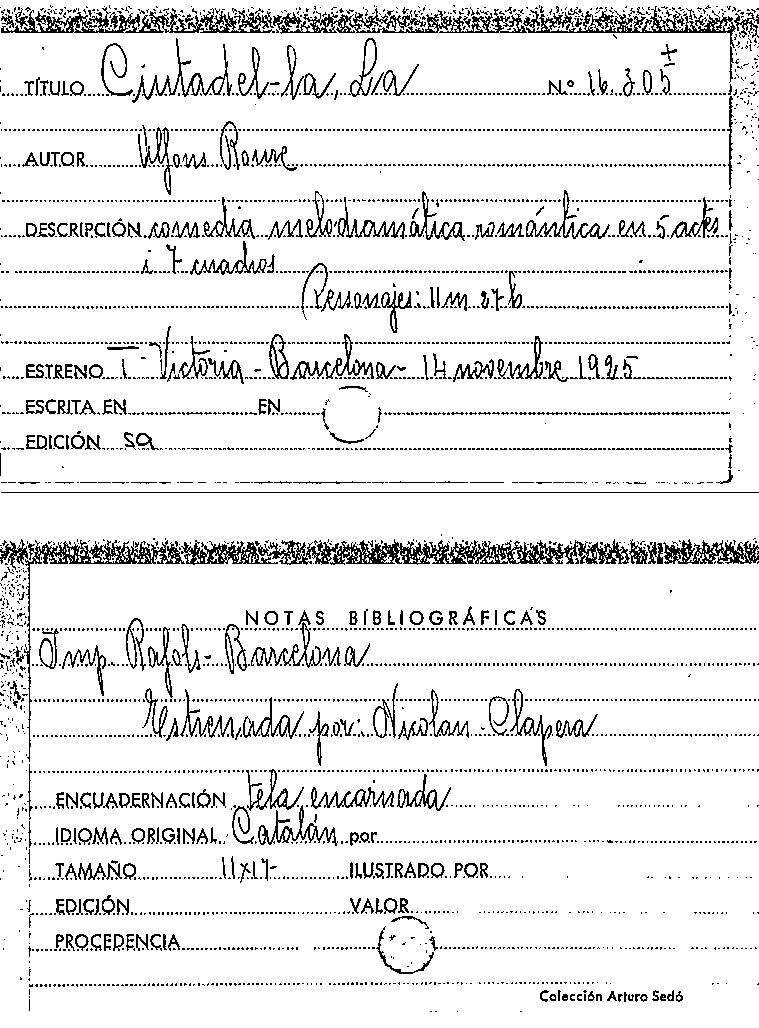 TÍTULO Ciutadel-la, La N.º 16.305 +
AUTOR Alfons Roure
DESCRIPCIÓN comedia melodramática romántica en 5 actes
i 7 cuadros
Personajes: 11m 27h
ESTRENO T. Victoria - Barcelona - 14 novembre 1925
ESCRITA EN EN
EDICIÓN sa
NOTAS BIBLIOGRÁFICAS
Imp. Rafols - Barcelona
Estrenada por: Nicolau - Clapera
ENCUADERNACIÓN tela encarnada
IDIOMA ORIGINAL Catalán por
TAMAÑO 11x17 ILUSTRADO POR
EDICIÓN VALOR
PROCEDENCIA
Colección Arturo Sedó